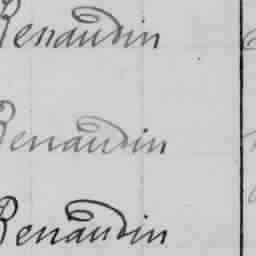 Renaudin
Renaudin
Renaudin